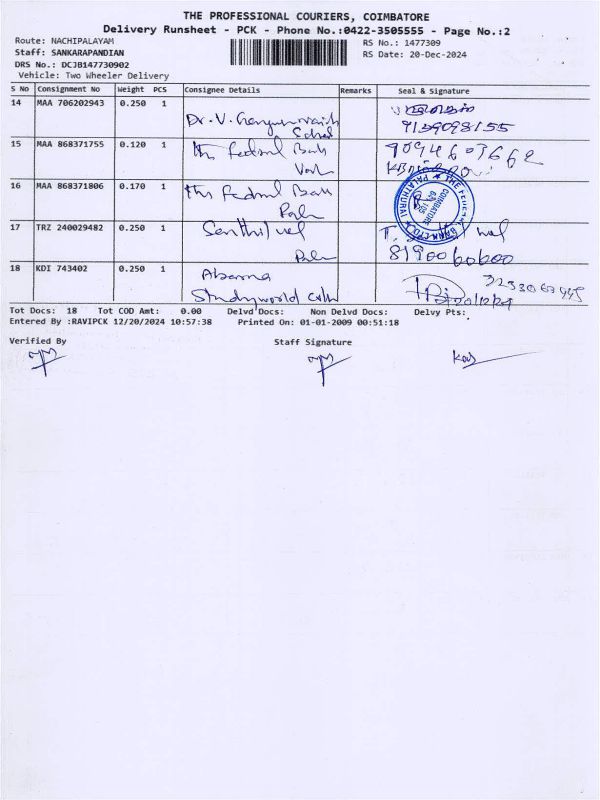 THE PROFESSIONAL COURIERS, COIMBATORE
Delivery Runsheet - PCK - Phone No.:0422-3505555 - Page No.:2
Route: NACHIPALAYAM RS No.: 1477309
Staff: SANKARAPANDIAN RS Date: 20-Dec-2024
DRS No.: DCJB147730902
Vehicle: Two Wheeler Delivery
S No Consignment No Weight PCS Consignee Details Remarks Seal & Signature
14 MAA 706202943 0.250 1
Dr. V. School
9159098155
15 MAA 868371755 0.120 1 The Federal Bank
16 MAA 868371806 0.170 1 The Federal Bank
THE FEDERAL BANK LTD PALATHURAI
COIMBATORE
17 TRZ 240029482 0.250 1 Senthil vel
8190060600
18 KDI 743402 0.250 1 Abarna
Studyworld
Tot Docs: 18 Tot COD Amt: 0.00 Delvd Docs: Non Delvd Docs: Delvy Pts:
Entered By :RAVIPCK 12/20/2024 10:57:38 Printed On: 01-01-2009 00:51:18
Verified By Staff Signature